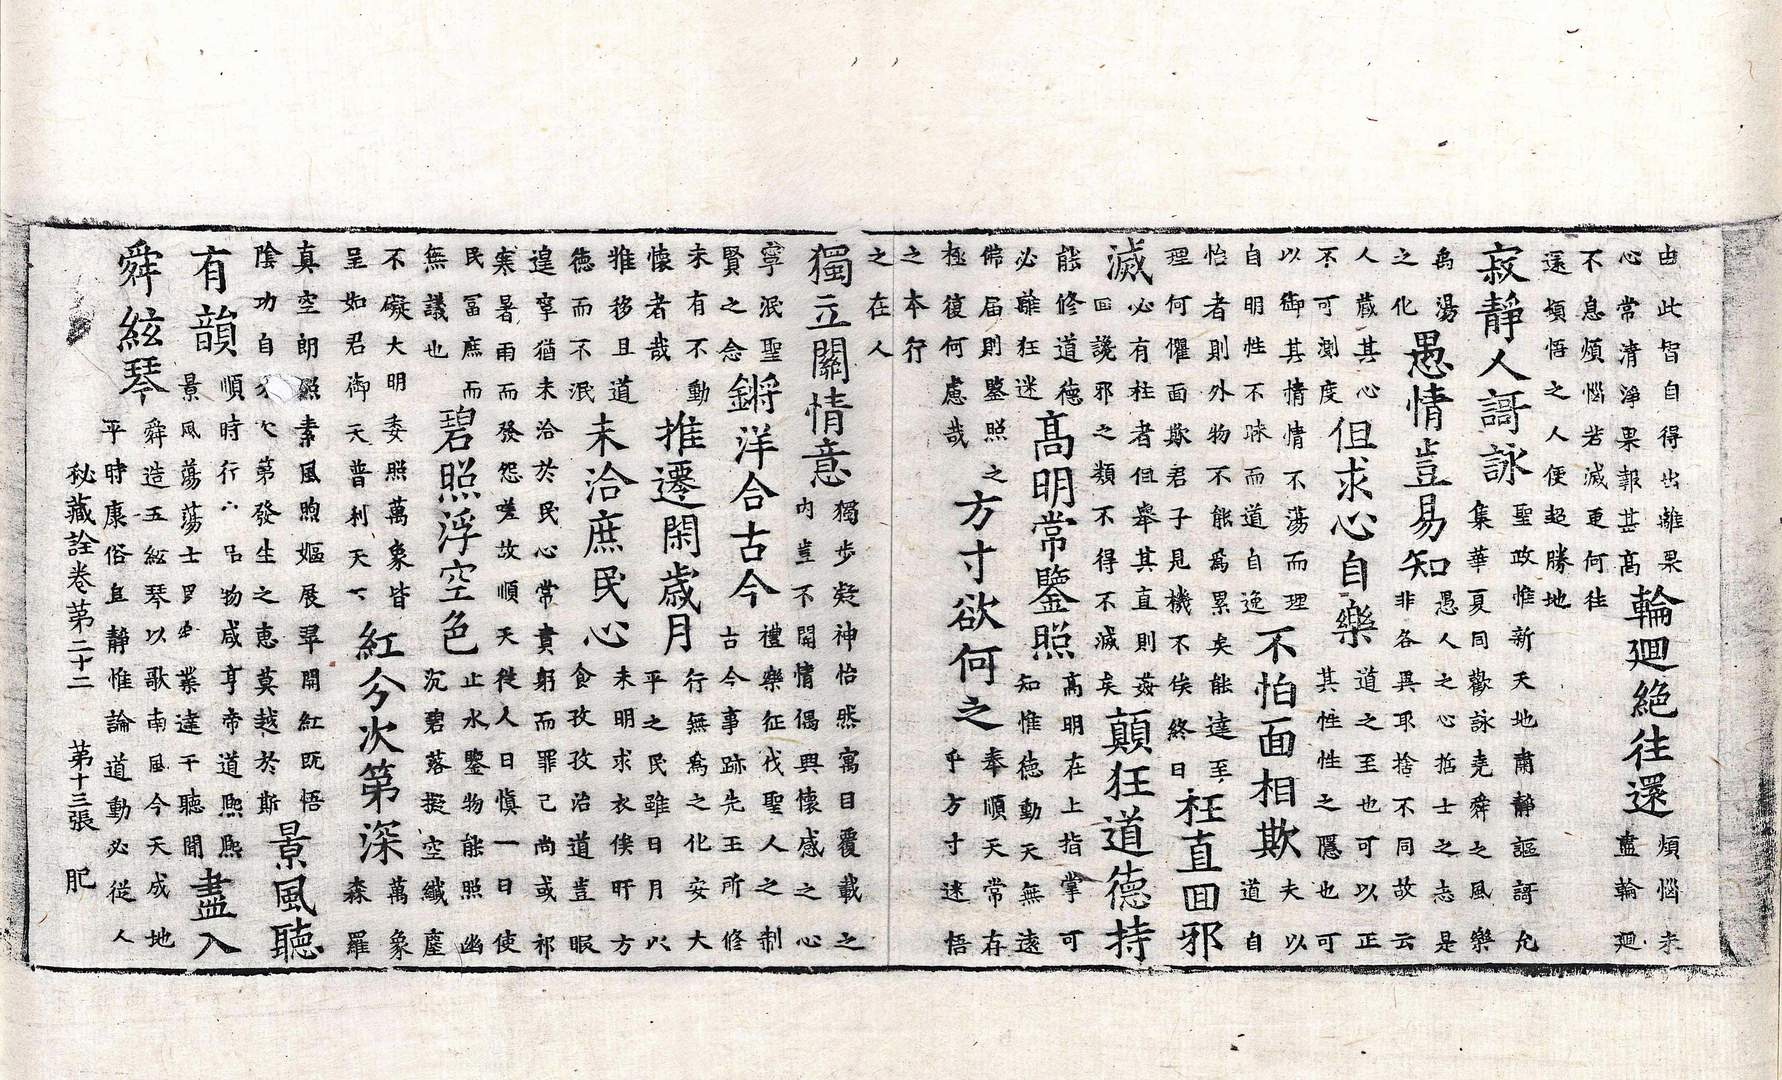 由此智自得出離果
心常清淨果報甚高
輪迴絶往還
煩惱未
盡輪迴
不息煩惱若滅更何往
還頓悟之人便超勝地
寂靜人謌詠
聖政惟新天地肅靜謳謌允
集華夏同歡詠堯舜之風樂
為湯
之化
愚情豈易知
愚人之心哲士之志是
非各異取捨不同故云
人蔵其心
不可測度
但求心自樂
道之至也可以正
其性性之隱也可
以御其情情不蕩而理
自明性不昧而道自逸
不怕面相欺
夫以
道自
怡者則外物不能為累矣能達至
理何懼面欺君子見機不俟終日
枉直回邪
滅
必有枉者但舉其直則姦
回讒邪之類不得不滅矣
顛狂道德持
能修道德
必離狂迷
高明常鑒照
高明在上指掌可
知惟德動天無遠
佛届則鑒照之
極復何慮哉
方寸欲何之
奉順天常存
乎方寸迷悟
之本行
之在人
獨立關情意
獨步凝神怡然寓目覆載之
内豈不閒情偶興懷感之心
寧泯聖
賢之念
鏘洋合古今
禮樂征伐聖人之制
古今事跡先王所修
未有不動
懷者哉
推遷閑歳月
行無為之化安大
平之民雖日月以
雅移且道
德而不泯
未洽庶民心
未明求衣俟旰方
食孜孜治道豈暇
遑寧猶未洽於民心常責躬而罪己尚或祁
寒暑雨而發怨嗟故順天從人日慎一日使
民冨庶而
無議也
碧照浮空色
止水鑒物能照幽
沉碧落擬空纖塵
不礙大明委照萬象皆
呈如君御天普利天下
紅分次第深
萬象
森羅
真空朗照素風煦嫗展翠開紅既悟
陰功自次第發生之恵莫越於斯
景風聽
有韻
順時行吕物咸亨帝道熈熈
景風蕩蕩士業達干聽聞
盡入
舜絃琴
舜造五絃琴以歌南風今天成地
平時康俗且靜惟論道動必從人
秘藏詮卷第二十二 第十三張 肥